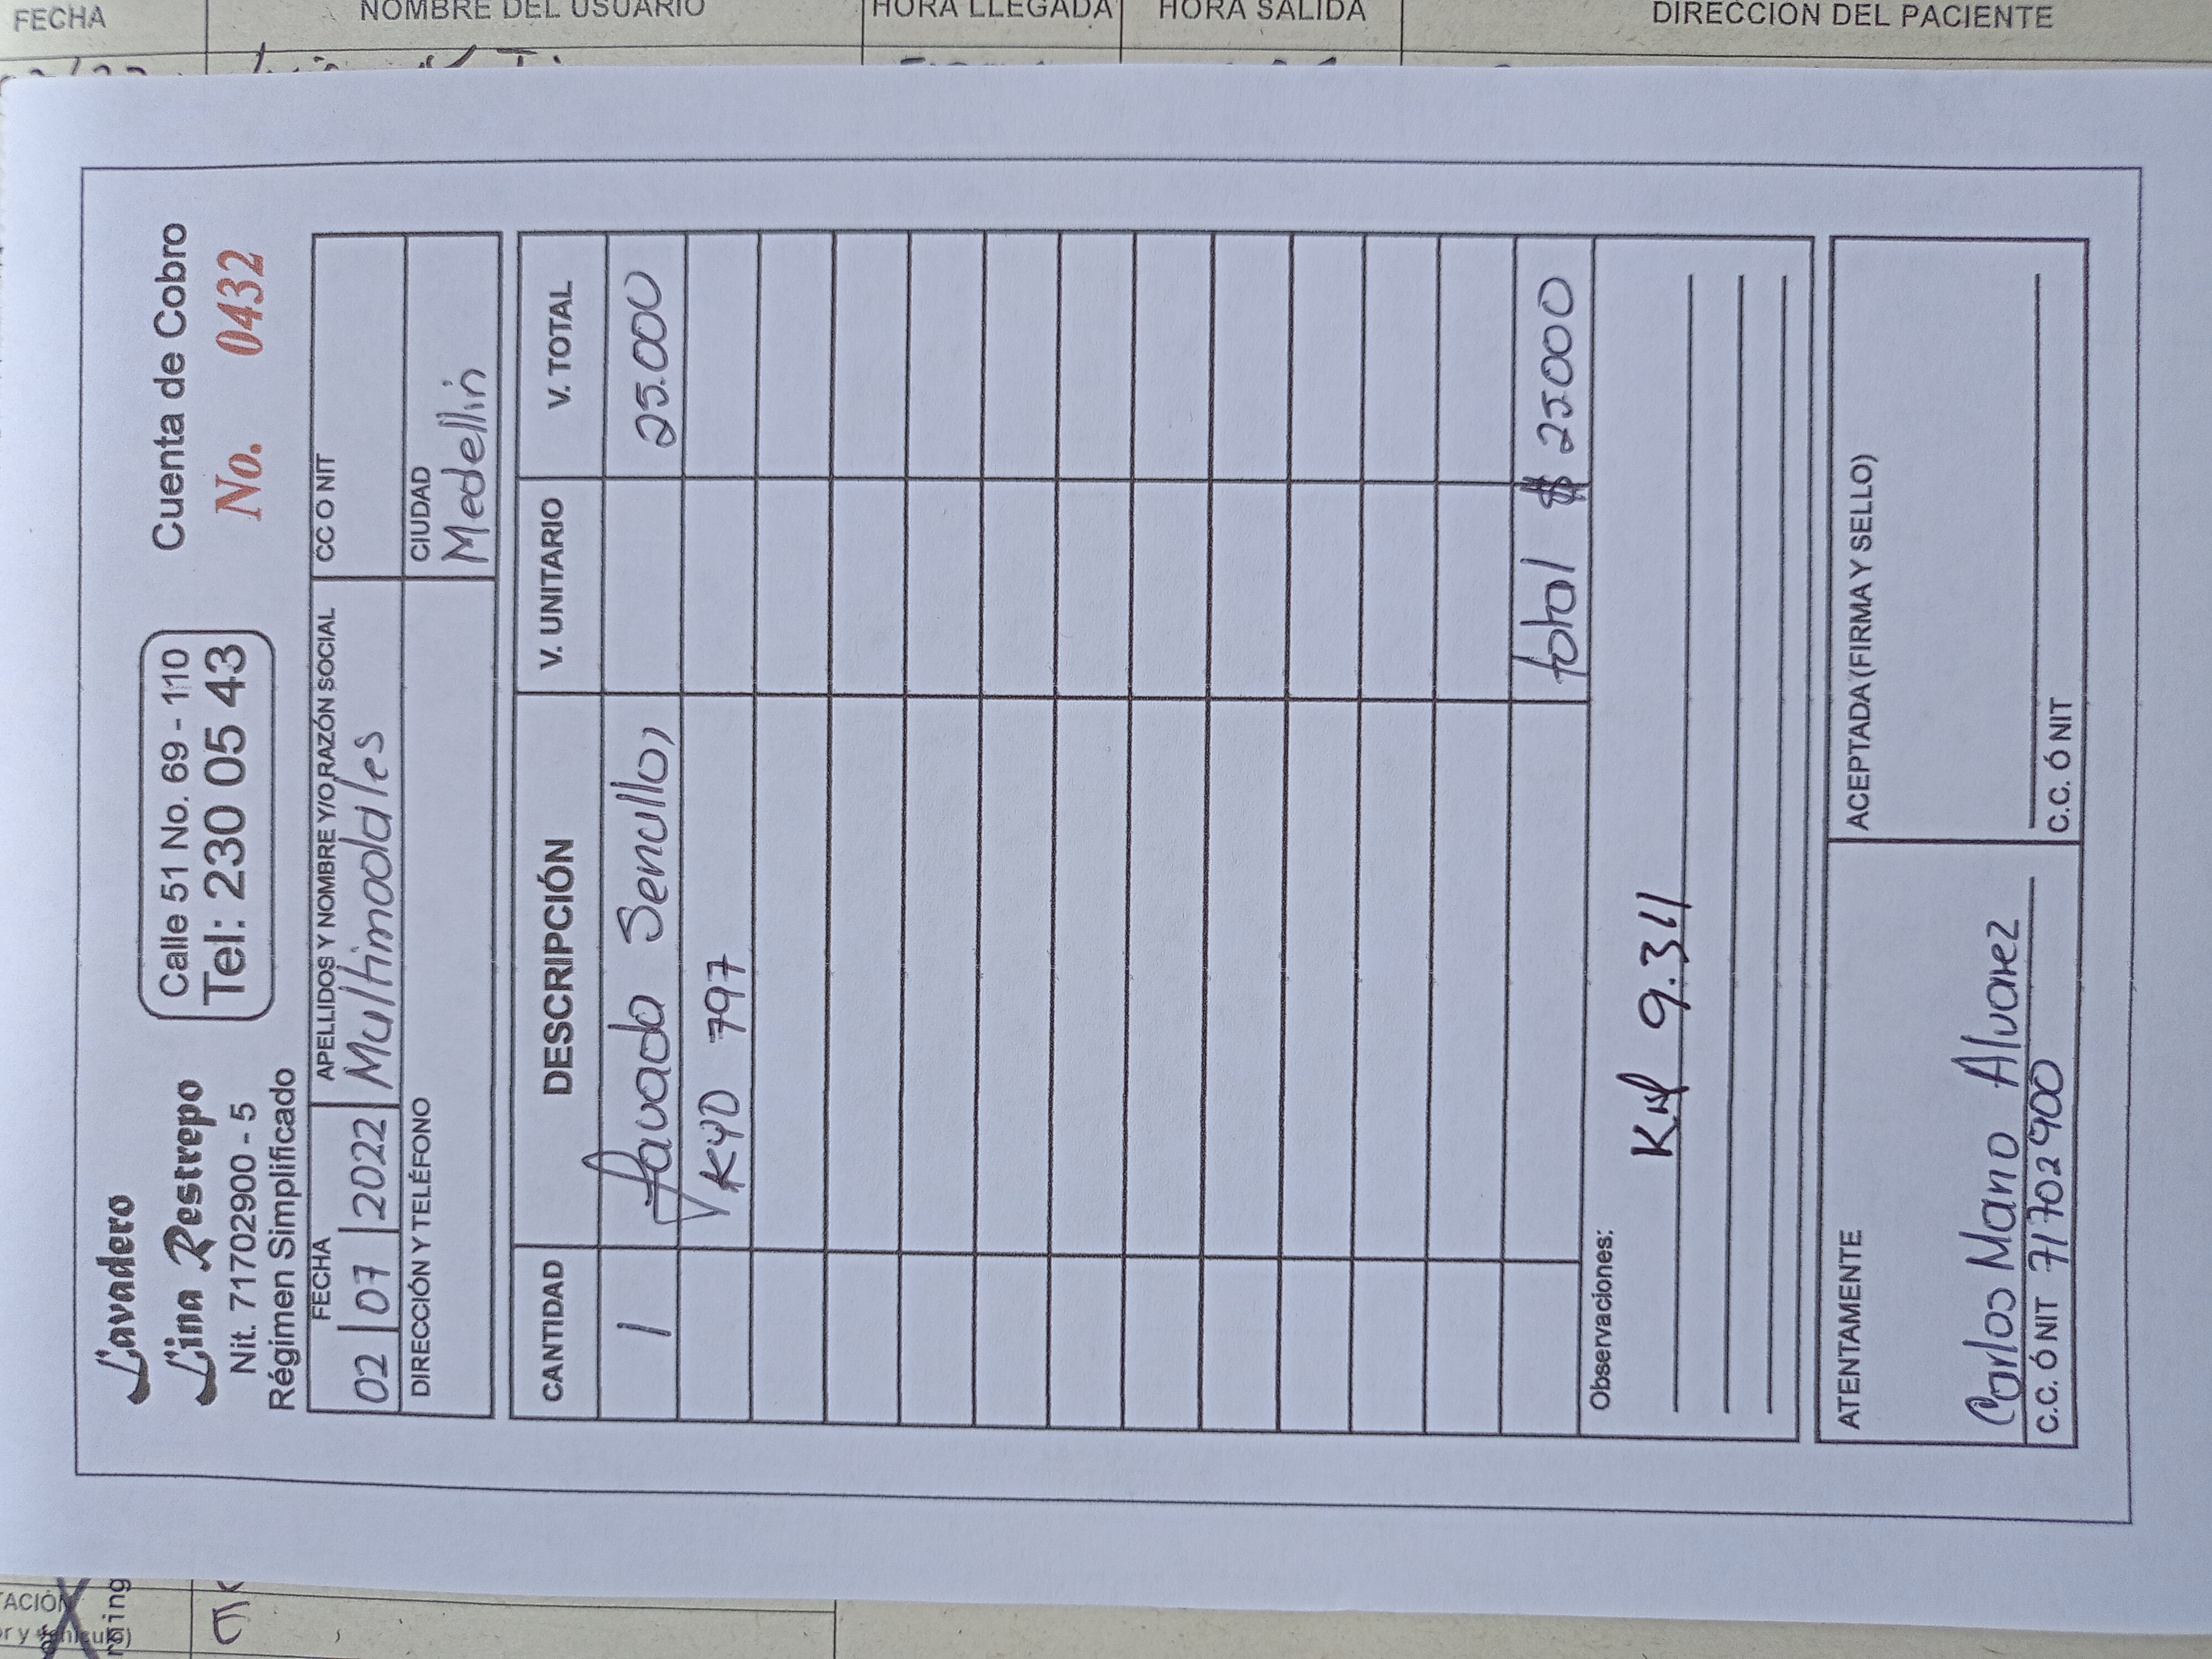 FECHA NOMBRE DEL USUARIO HORA LLEGADA HORA SALIDA DIRECCION DEL PACIENTE
Lavadero
Lina Restrepo
Nit. 71702900 - 5
Régimen Simplificado
Calle 51 No. 69 - 110
Tel: 230 05 43
Cuenta de Cobro
No. 0432
FECHA
02 07 2022
APELLIDOS Y NOMBRE Y/O RAZÓN SOCIAL
Multimodales
CC O NIT
DIRECCIÓN Y TELÉFONO
CIUDAD
Medellin
CANTIDAD DESCRIPCIÓN V. UNITARIO V. TOTAL
1 Lavada Senullo, 25.000
KYD 797
total $ 25000
Observaciones:
KM 9.311
ATENTAMENTE
Carlos Mario Alvarez
C.C. Ó NIT 71702900
ACEPTADA (FIRMA Y SELLO)
C.C. Ó NIT